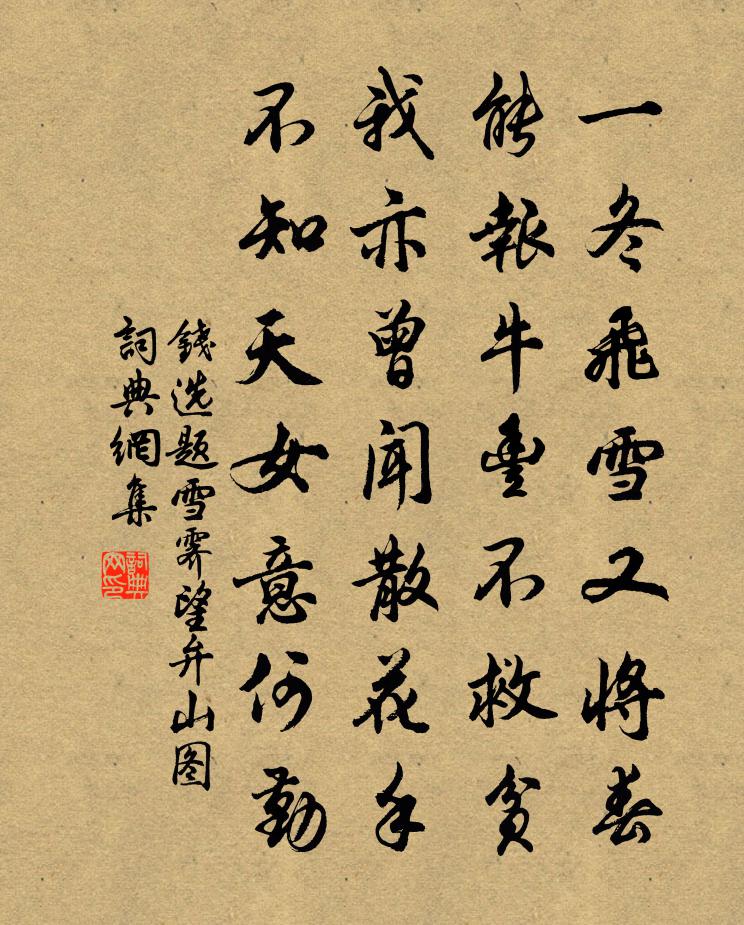 一冬飛雪又將春
能報牛豐不救貧
我亦曾聞散花手
不知天女意何勤
錢选题雪霁望弁山图
詞典網集
詞典网印